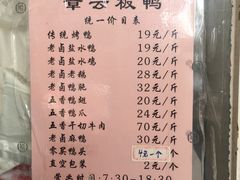 章云板鸭
统一价目表
传统烤鸭 19元/斤
老卤盐水鸭 19元/斤
老卤盐水鸡 20元/斤
老卤老鹅 28元/斤
老卤鸭肫 32元/斤
五香鸭翅 20元/斤
五香鸭爪 24元/斤
五香干切牛肉 70元/斤
老卤麻鸭 30元/斤
零买鸭头 4元一个/个
真空包装 2元/个
营业时间:7:30-18:30